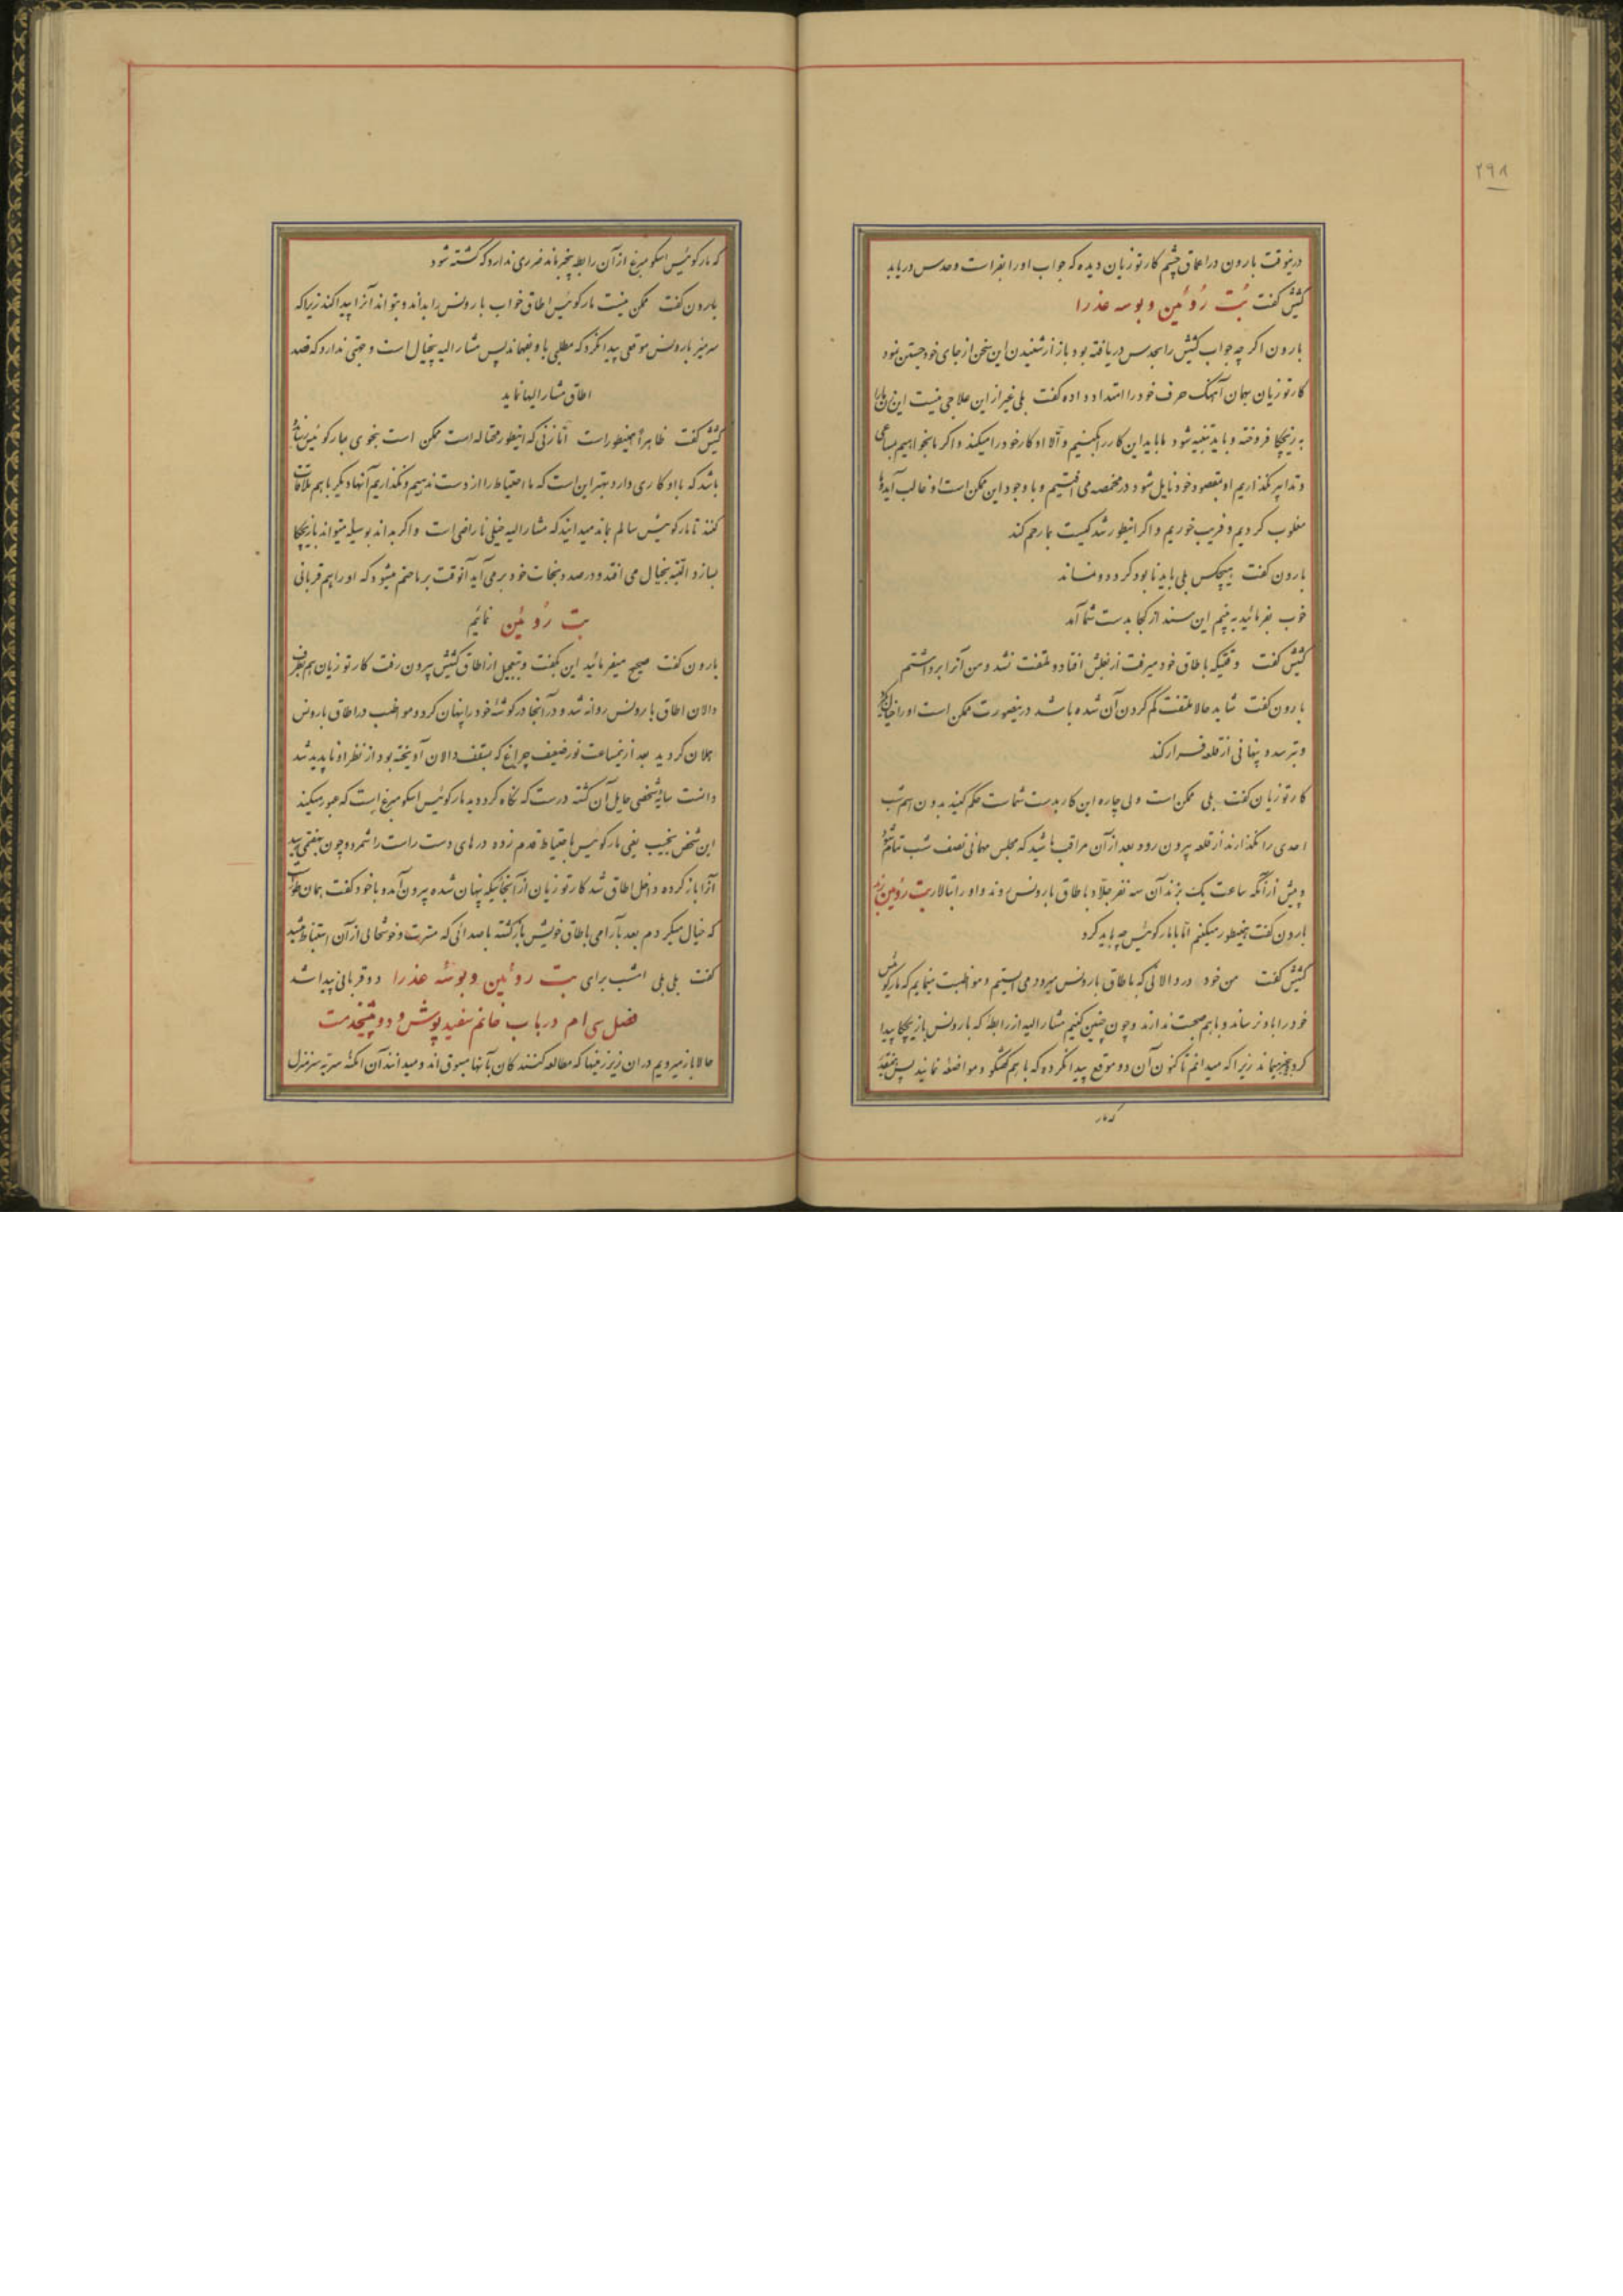 ۲۹۸
درینوقت بارون در اعماق چشم کارتوزیان دیده که جواب او را بفراست و حدس دریابد
کشیش گفت بُت رُوئین و بوسه عذرا
بارون اگرچه جواب کشیش را بحدس دریافته بود باز از شنیدن این سخن از جای خود جستن نمود
کارتوزیان بهمان آهنگ حرف خود را امتداد داده گفت بلی غیر از این علاجی نیست این زن ما را
به زیچکا فروخته و باید تنبیه شود ما باید این کار را بکنیم و الا او کار خود را میکند و اگر ما بخواهیم بمساعی
و تدابیر بگذاریم او بمقصود خود نایل شود در مخمصه می افتیم و با وجود این ممکن است او غالب آید و ما
مغلوب کردیم و فریب خوریم و اگر اینطور شد کیست بما رحم کند
بارون گفت هیچکس بلی باید نابود کرد و در نماند
خوب بفرمائید به بینم این سند از کجا بدست شما آمد
کشیش گفت وقتیکه باطاق خود میرفت از بغلش افتاد و ملتفت نشد و من آنرا برداشتم
بارون گفت شاید حالا ملتفت گم کردن آن شده باشد درینصورت ممکن است او را خیال گیرد
و بترسد و پنهانی از قلعه فرار کند
کارتوزیان گفت بلی ممکن است ولی چاره این کار بدست شماست حکم کنید بدون اسم شب
احدی را نگذارند از قلعه بیرون رود بعد از آن مراقب باشید که مجلس مهمانی نصف شب تمام شود
و پیش از آنکه ساعت یک بزند آن سه نفر جلاد باطاق بارونس روند و او را بتالار بت روئین برند
بارون گفت همینطور میکنم اما با مارکوئیس چه باید کرد
کشیش گفت من خود در دالانی که باطاق بارونس میرود می ایستم و مواظبت مینمایم که مارکوئیس
خود را باو نرساند و باهم صحبت ندارند و چون چنین کنیم مشارالیه از رابطه که بارونس با زیچکا پیدا
کرده بیخبر میماند زیرا که میدانم تاکنون آن دو موقع پیدا نکرده که باهم گفتگو و مواضعه نمایند پس بعقیده
که مار
که مارکوئیس اسکومبرغ از آن رابطه بیخبر ماند ضرری ندارد که کشته شود
بارون گفت ممکن نیست مارکوئیس اطاق خواب بارونس را بداند و بتواند آنرا پیدا کند زیرا که
سر میز بارونس موقعی پیدا نکرد که مطلبی باو بفهماند پس مشارالیه بیخیال است و جهتی ندارد که قصد
اطاق مشارالیها نماید
کشیش گفت ظاهراً همینطور است اما زنی که اینطور محتاله است ممکن است بنحوی بمارکوئیس رسانده
باشد که با او کاری دارد بهتر این است که ما احتیاط را از دست ندهیم و نگذاریم آنها دیگر باهم ملاقات
کنند تا مارکوئیس سالم بماند میدانید که مشارالیه خیلی ناراضی است و اگر بداند بوسیله میتواند با زیچکا
بسازد البته بخیال می افتد و درصدد نجات خود برمی آید آنوقت بر ما حتم میشود که او را هم قربانی
بت رُوئین نمائیم
بارون گفت صحیح میفرمائید این بگفت و بتعجیل از اطاق کشیش بیرون رفت کارتوزیان هم بطرف
دالان اطاق بارونس روانه شد و در آنجا در گوشۀ خود را پنهان کرد و مواظب در اطاق بارونس
دالان گردید بعد از نیمساعت نور ضعیف چراغ که بسقف دالان آویخته بود از نظر او ناپدید شد
دانست سایۀ شخصی حایل آن گشته درست که نگاه کرد دید مارکوئیس اسکومبرغ است که عبور میکند
این شخص نجیب یعنی مارکوئیس با حتیاط قدم زده درهای دست راست را شمرد و چون بهفتمی رسید
آنرا باز کرده داخل اطاق شد کارتوزیان از آنجائیکه پنهان شده بیرون آمد و با خود گفت همان طور است
که خیال میکردم بعد بآرامی باطاق خویش بازگشته با صدائی که مسرت و خوشحالی از آن استنباط میشد
گفت بلی بلی امشب برای بت روئین و بوسۀ عذرا دو قربانی پیدا شد
فصل سی ام در باب خانم سفید پوش و دو پیشخدمت
حالا باز میرویم در آن زیرزمینها که مطالعه کنندگان بآنها مسبوق اند و میدانند آن امکنۀ سریه سرمنزل